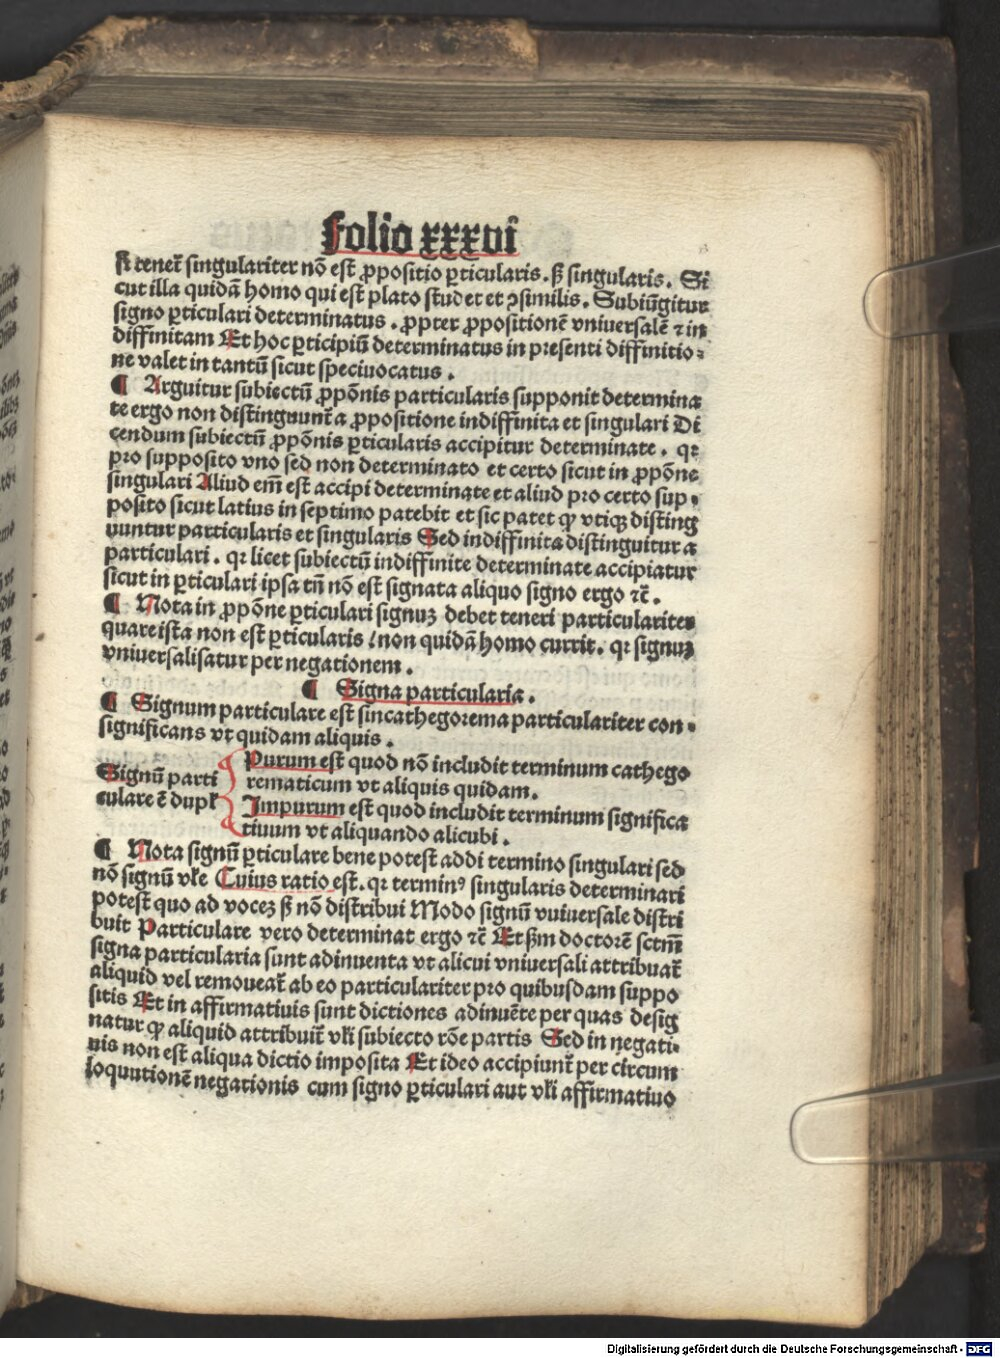 folio xxxvi
si tenet᷑ singulariter nō est ꝓpositio ꝑticularis. sꝫ singularis. Si
cut illa quidā homo qui est plato studet et ↄsimilis. Subiūgitur
signo ꝑticulari determinatus. ꝓpter ꝓpositionē vniuersalē ⁊ in
diffinitam Et hoc ꝑticipiū determinatus in presenti diffinitio⸗
ne valet in tantū sicut speciuocatus.
¶ Arguitur subiectū ꝓpōnis particularis supponit determina
te ergo non distingnunt᷑ a ꝓpositione indiffinita et singulari Di
cendum subiectū ꝓpōnis ꝑticularis accipitur determinate. qꝛ
pro supposito vno sed non determinato et certo sicut in ꝓpōne
singulari Aliud em̄ est accipi determinate et aliud pro certo sup⸗
posito sicut latius in septimo patebit et sic patet ꝙ vtiqꝫ disting
uuntur particularis et singularis Sed indiffinita distinguitur a
particulari. qꝛ licet subiectū indiffinite determinate accipiatur
sicut in ꝑticulari ipsa tn̄ nō est signata aliquo signo ergo ⁊c̄.
¶ Nota in ꝓpōne ꝑticulari signuꝫ debet teneri particulariter
quare ista non est ꝑticularis / non quidā homo currit. qꝛ signuꝫ
vniuersalisatur per negationem.
¶ Signa particularia.
¶ Signum particulare est sincathegorema particulariter con⸗
significans vt quidam aliquis.
Signū parti
culare ē dupl᷑
Purum est quod nō includit terminum cathego
rematicum vt aliquis quidam.
Impurum est quod includit terminum significa
tiuum vt aliquando alicubi.
¶ Nota signū ꝑticulare bene potest addi termino singulari sed
nō signū vl̄e Cuius ratio est. qꝛ terminꝰ singularis determinari
potest quo ad voceꝫ sꝫ nō distribui Modo signū vuiuersale distri
buit Particulare vero determinat ergo ⁊c̄ Et ẜm doctorē sctm̄
signa particularia sunt adinuenta vt alicui vniuersali attribuat᷑
aliquid vel remoueat᷑ ab eo particulariter pro quibusdam suppo
sitis Et in affirmatiuis sunt dictiones adinuēte per quas desig
natur ꝙ aliquid attribuit᷑ vl̄i subiecto rōe partis Sed in negati⸗
uis non est aliqua dictio imposita Et ideo accipiunt᷑ per circum
loquutionē negationis cum signo ꝑticulari aut vl̄i affirmatiuo
Digitalisierung gefördert durch die Deutsche Forschungsgemeinschaft - DFG